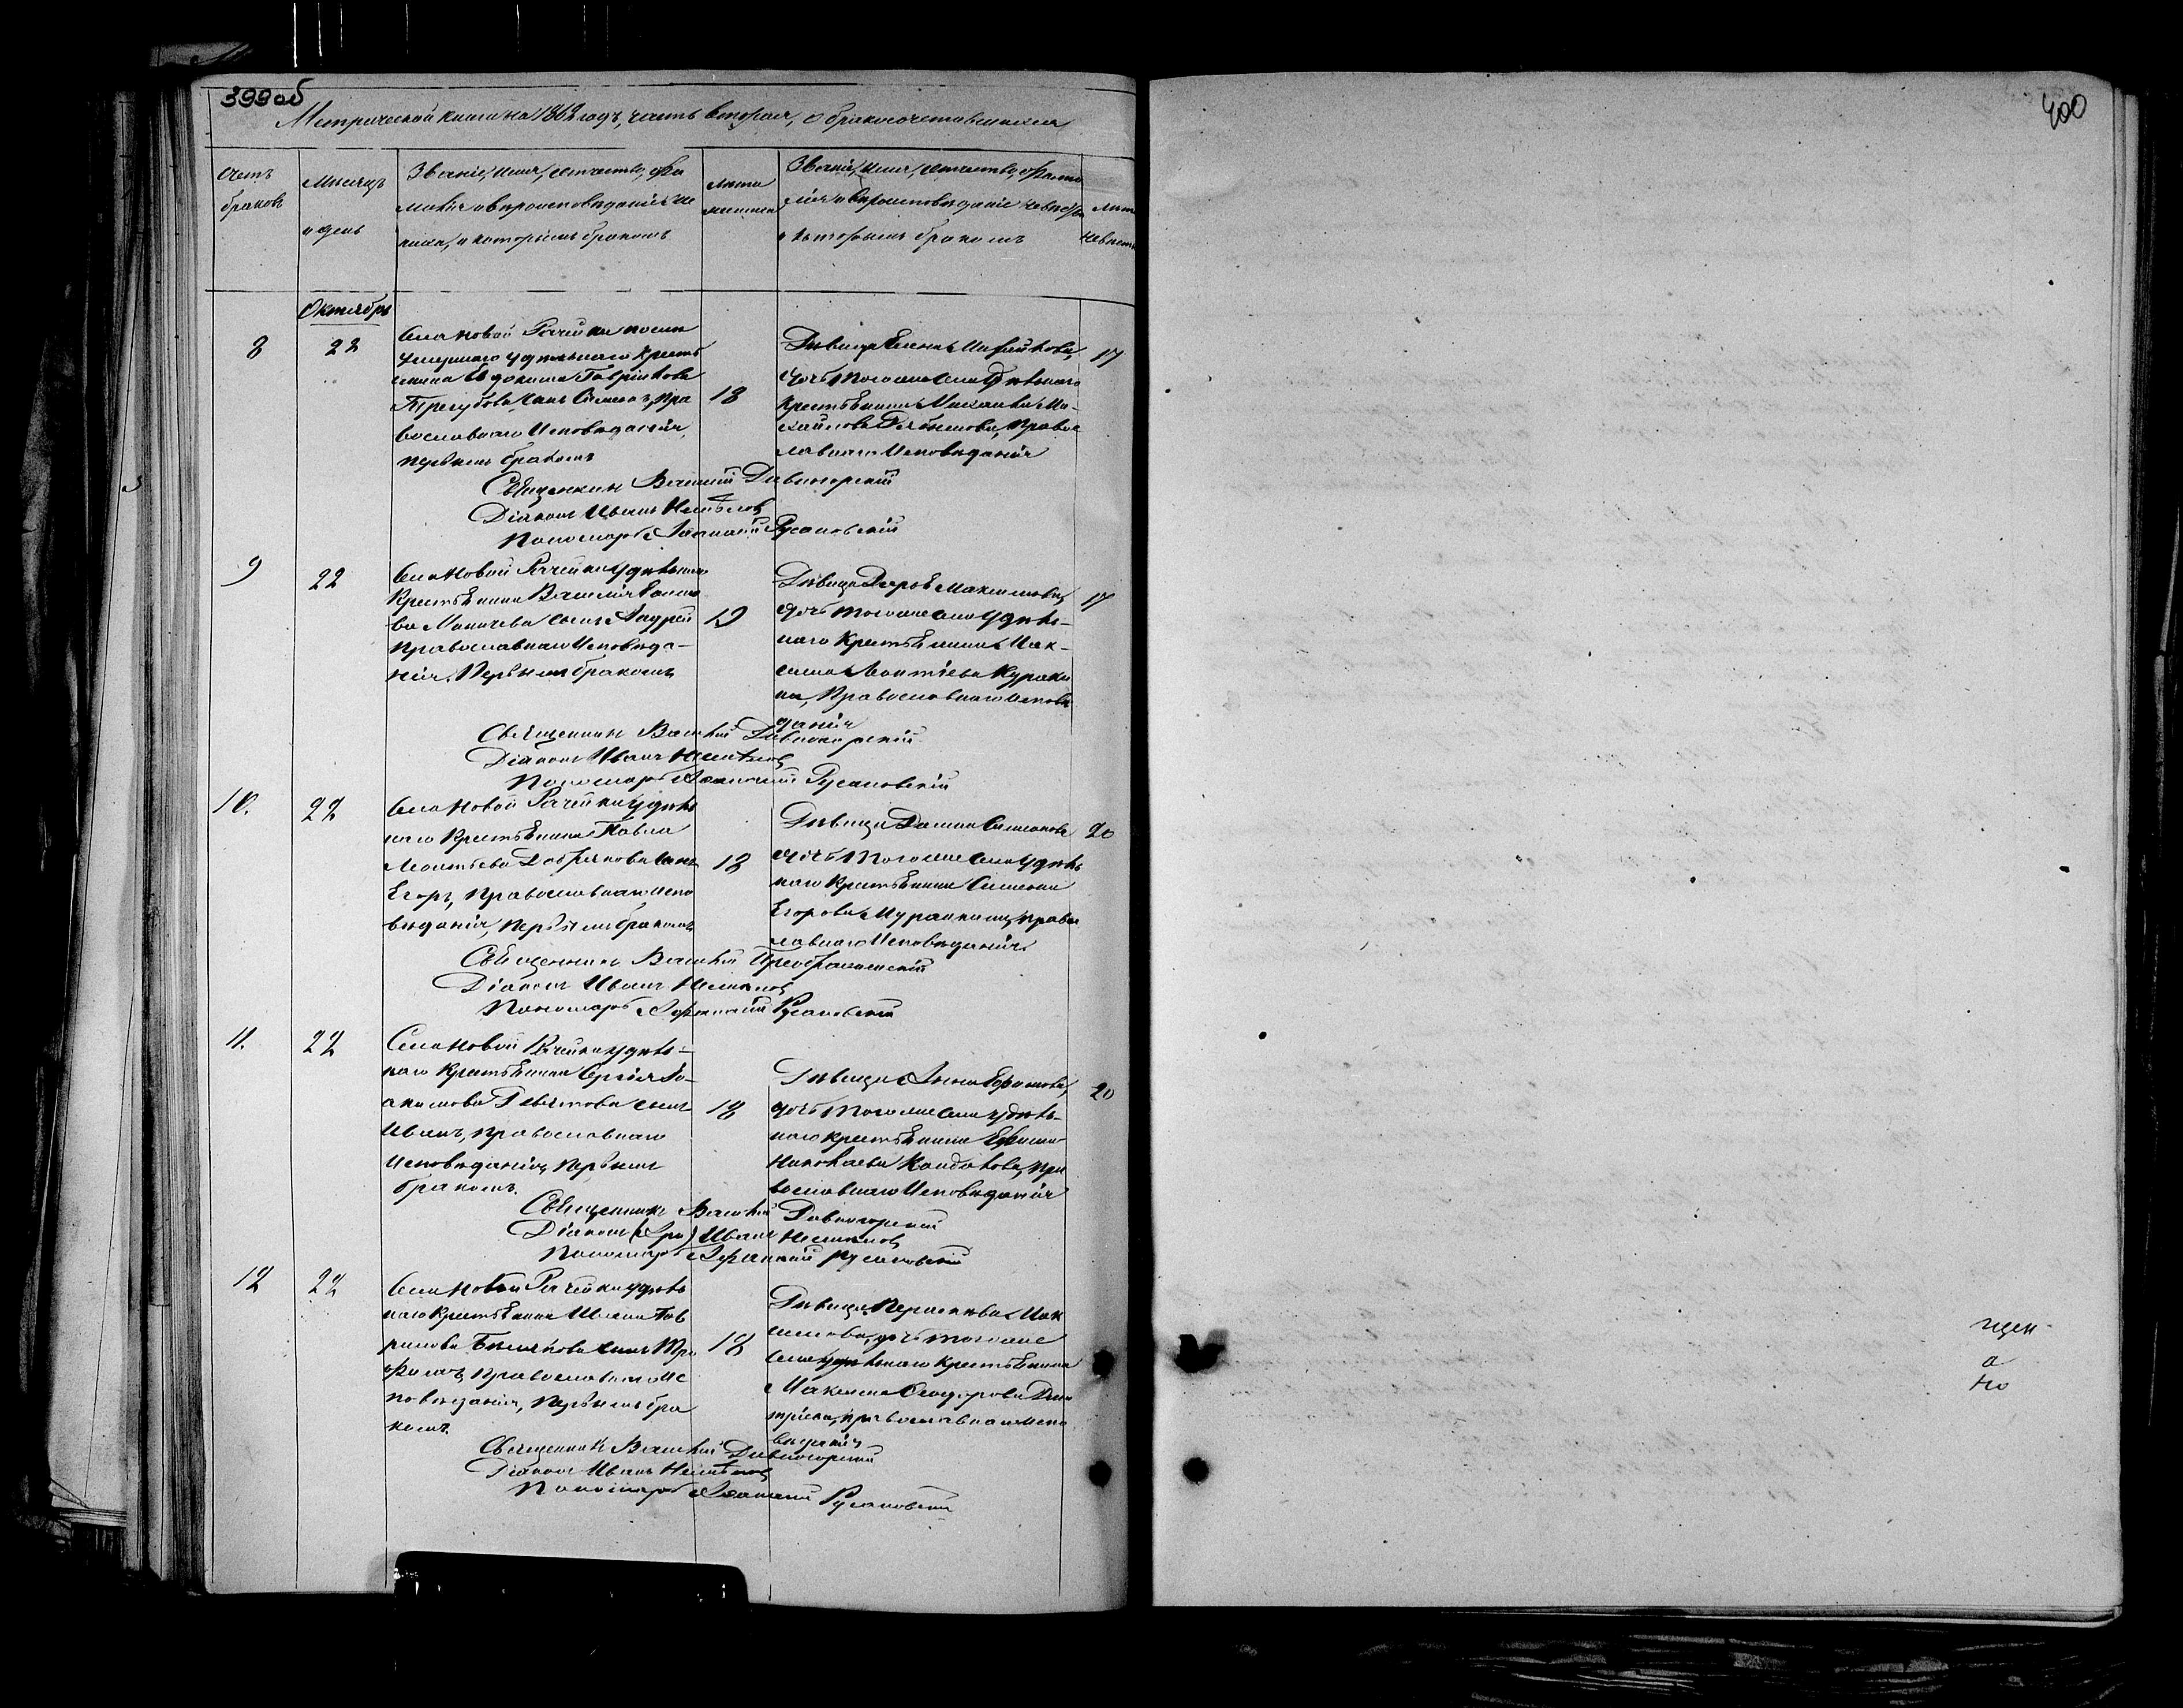 399 об
400
Метрической книги на 1862 годъ, часть вторая, о бракосочетавшихся
Счетъ браковъ
Мѣсяцъ и день
Званіе, имя, отчество, фа
милія и вѣроисповѣданіе же
ниха, и которымъ бракомъ
Лѣта жениха
Званіе, имя, отчество, фами
лія и вѣроисповѣданіе невѣсты
и которымъ бракомъ
Лѣта невѣсты
Октябрь
8
22
Села Новой Рачейки послѣ
умершаго удѣльнаго кресть
янина Евдокима Гаврилова
Трегубова сынъ Семенъ, пра
вославнаго исповѣданія,
первымъ бракомъ
18
Дѣвица Елена Михайлова,
дочь того же села удѣльнаго
крестьянина Михаила Ми-
хайлова, правос
лавнаго исповѣданія
17
Священникъ Василій Дивногорскій
Діаконъ Иванъ
Пономарь Афанасій Русановскій
9
22
Села Новой Рачейки удѣльнаго
крестьянина Василія
сынъ Андрей
православнаго исповѣда-
нія, первымъ бракомъ
19
Дѣвица Дарья Максимова,
дочь того же села удѣль-
наго крестьянина Мак-
сима Леонтьева Кураки
на, православнаго исповѣ
данія
17
Священникъ Василій Дивногорскій
Діаконъ Иванъ
Пономарь Афанасій Русановскій
10.
22
Села Новой Рачейки удѣль
наго крестьянина Павла
Леонтьева Добрякова сынъ
Егоръ, православнаго испо
вѣданія, первымъ бракомъ
18
Дѣвица Семенова
дочь того же села удѣль
наго крестьянина Семена
Егорова, правос
лавнаго исповѣданія
20
Священникъ Василій Преображенскій
Діаконъ Иванъ
Пономарь Афанасій Русановскій
11.
22
Села Новой Рачейки удѣль-
наго крестьянина Сергія
сынъ
Иванъ, православнаго
исповѣданія, первымъ
бракомъ.
18
Дѣвица Анна Ефимова,
дочь того же села удѣль-
наго крестьянина Ефима
Николаева, пра
вославнаго исповѣданія
20
Священникъ Василій Дивногорскій
Діаконъ Иванъ
Пономарь Афанасій Русановскій
12
22
Села Новой Рачейки удѣль
наго крестьянина Гав
рилова сынъ Тро
фимъ, православнаго ис
повѣданія, первымъ бра
комъ.
18
Дѣвица Параскева Мак
симова, дочь того же
села удѣльнаго крестьянина
Максима Ѳеодорова Дми
тріева, православнаго испо
вѣданія
Священникъ Василій Дивногорскій
Діаконъ Иванъ
Пономарь Афанасій Русановскій